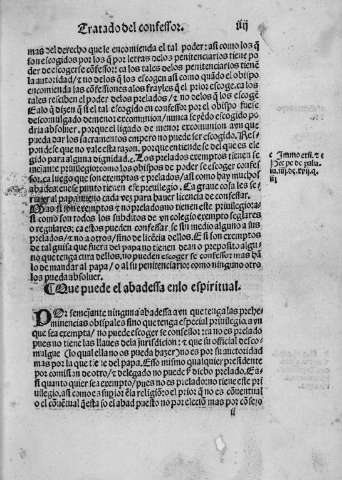 Tratado del confessor. iiij
mas del derecho que le encomienda el tal poder: así como los q̃
son escogidos por los q̃ por letras delos penitenciarios tiene po
der de escogerse cõfessor: ca los tales delos penitenciarios tiene
la autoridad/ z no delos q̃ los escogen así como quãdo el obispo
encomienda las cõfessiones alos frayles q̃ el prior escoge. ca los
tales resciben el poder delos prelados/ z no delos q̃ los escogẽ
E alo q̃ dizen q̃ si el tal escogido en confessor por el obispo fuesse
descomulgado de menor excomunion/ nunca seyẽdo escogido po
dria absolver. porque el ligado de menor excomunion aun que
pueda dar los sacramentos empero no puede ser escogido. Res
pondese que no vale esta razon. porque entiende se del que es ele
gido para alguna dignidad. c Los prelados exemptos tienen se
mejante privilegio: como los obispos de poder se escoger confes
sor. ca luego que son exemptos z prelados/ así como hay muchos
abades: en esse punto tienen esse previlegio. Ca grave cosa les se
ria yr al papa mueno cada vez para haver licencia de confessar.
Mas si son exemptos z no prelados no tienen este privilegio: a
sí como son todos los subditos de un colegio exempto seglares
o regulares: ca estos pueden confessar se sin medio alguno a sus
prelados/ z no a otros/ sino de licẽcia dellos. E si son exemptos
de tal guisa que fuera del papa no tienen dean o preposito algu
no que tenga cura dellos, no pueden escoger se confessor mas hã
lo de mandar al papa/ o al su penitenciario: como ninguno otro
los pueda absolver.
¶ Que puede el abadessa enlo espiritual.
POr semejante ninguna abadessa aun que tenga las prehe
minencias obispales sino que tenga especial privilegio. a vn
que sea exempta/ no puede escoger se confessor: ca no es prelado
pues no tiene las llaves dela jurisdicion: z que su official desco-
mulgue (lo qual ella no os pueda hazer) no es por su autoridad
mas por la que tiene del papa. Esso mismo qualquier presidente
por comissiõ de otro/ z delegado no puede ser dicho prelado. En
si quanto quier sea exempto/ pues no es prelado: no tiene este pri
vilegio.
c Immo ersi. z c
ij